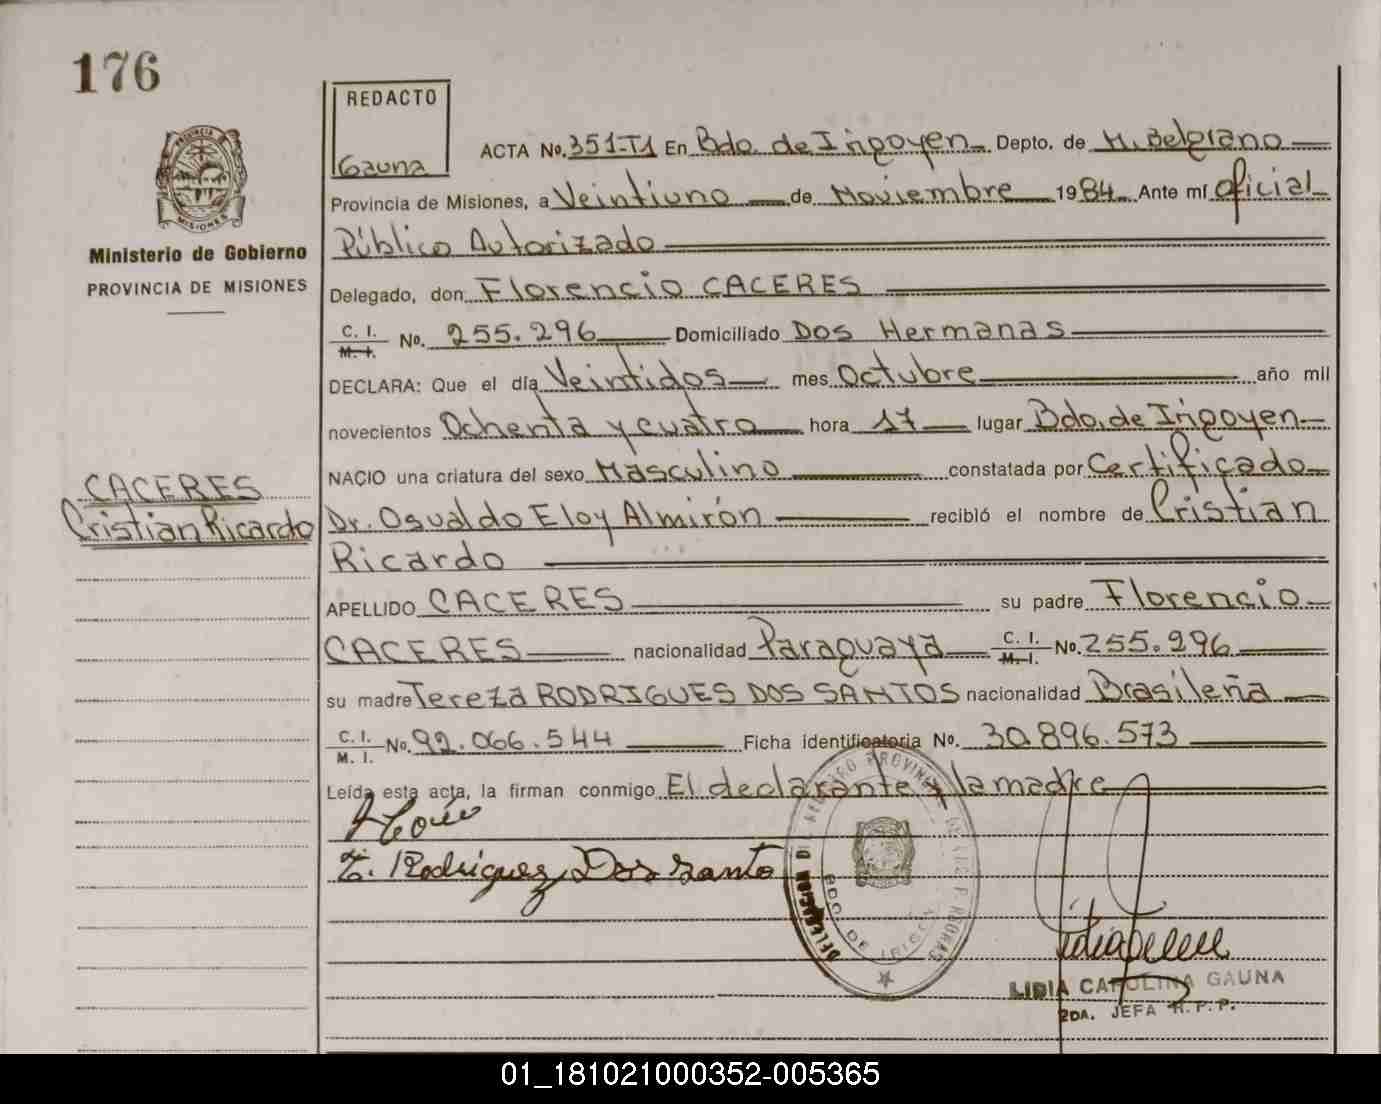 176
REDACTO
Gauna
Ministerio de Gobierno
PROVINCIA DE MISIONES
CACERES
Cristian Ricardo
ACTA No. 351-T1 En Bdo. de Irigoyen Depto. de M. Belgrano
Provincia de Misiones, a Veintiuno de Noviembre 1984 Ante mí oficial
Público Autorizado
Delegado, don Florencio CACERES
C. I. M. I. No. 255.296 Domiciliado Dos Hermanas
DECLARA: Que el día Veintidos mes Octubre año mil
novecientos Ochenta y cuatro hora 17 lugar Bdo. de Irigoyen
NACIO una criatura del sexo Masculino constatada por Certificado
Dr. Osvaldo Eloy Almirón recibió el nombre de Cristian
Ricardo
APELLIDO CACERES su padre Florencio
CACERES nacionalidad Paraguaya C. I. M. I. No. 255.296
su madre Tereza RODRIGUES DOS SANTOS nacionalidad Brasileña
C. I. M. I. No. 92.066.544 Ficha identificatoria No. 30.896.573
Leída esta acta, la firman conmigo El declarante y la madre
T. Rodriguez Dos Santo
BDO. DE IRIGOYEN
LIDIA CAROLINA GAUNA
2DA. JEFA R.P.P.
01_181021000352-005365